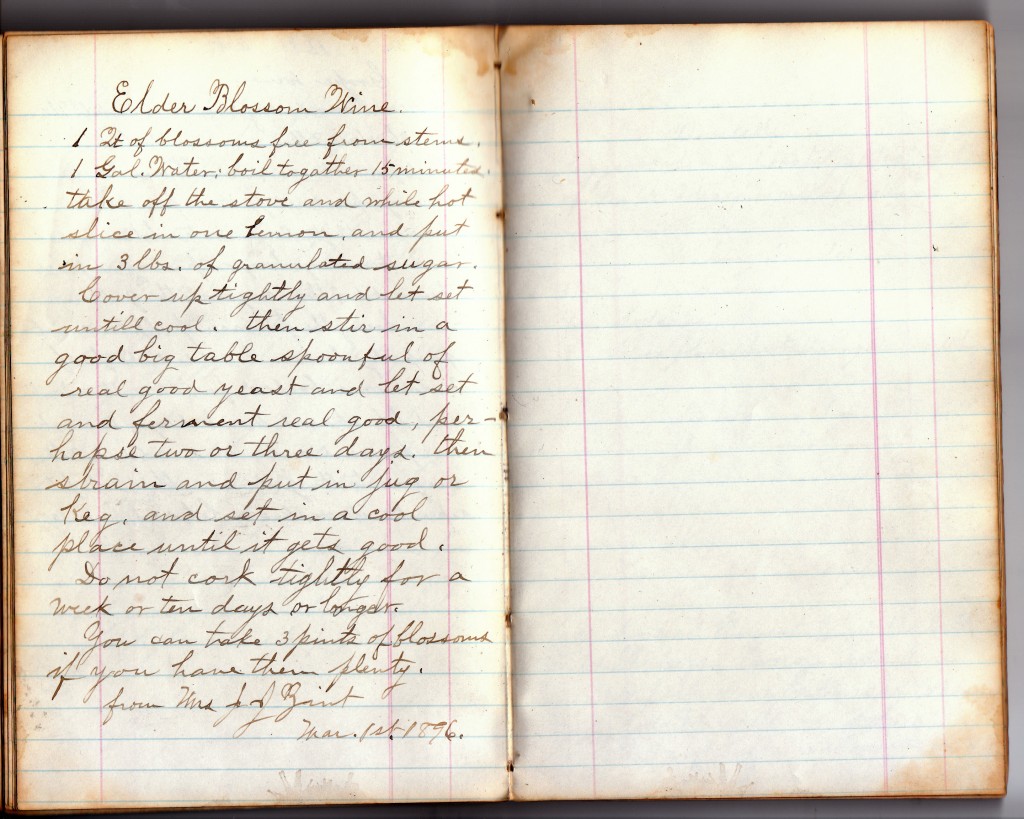 Elder Blossom Wine.
1 Qt of blossoms free from stems.
1 Gal. Water; boil togather 15 minutes.
take off the stove and while hot
slice in one lemon, and put
in 3 lbs. of granulated sugar.
Cover up tightly and let set
untill cool. then stir in a
good big table spoonful of
real good yeast and let set
and ferment real good, per-
hapse two or three days. then
strain and put in jug or
Keg, and set in a cool
place until it gets good.
Do not cork tightly for a
week or ten days or longer.
You can take 3 pints of blossoms
if you have them plenty.
from Mrs J J Zint
Mar. 1st. 1896.